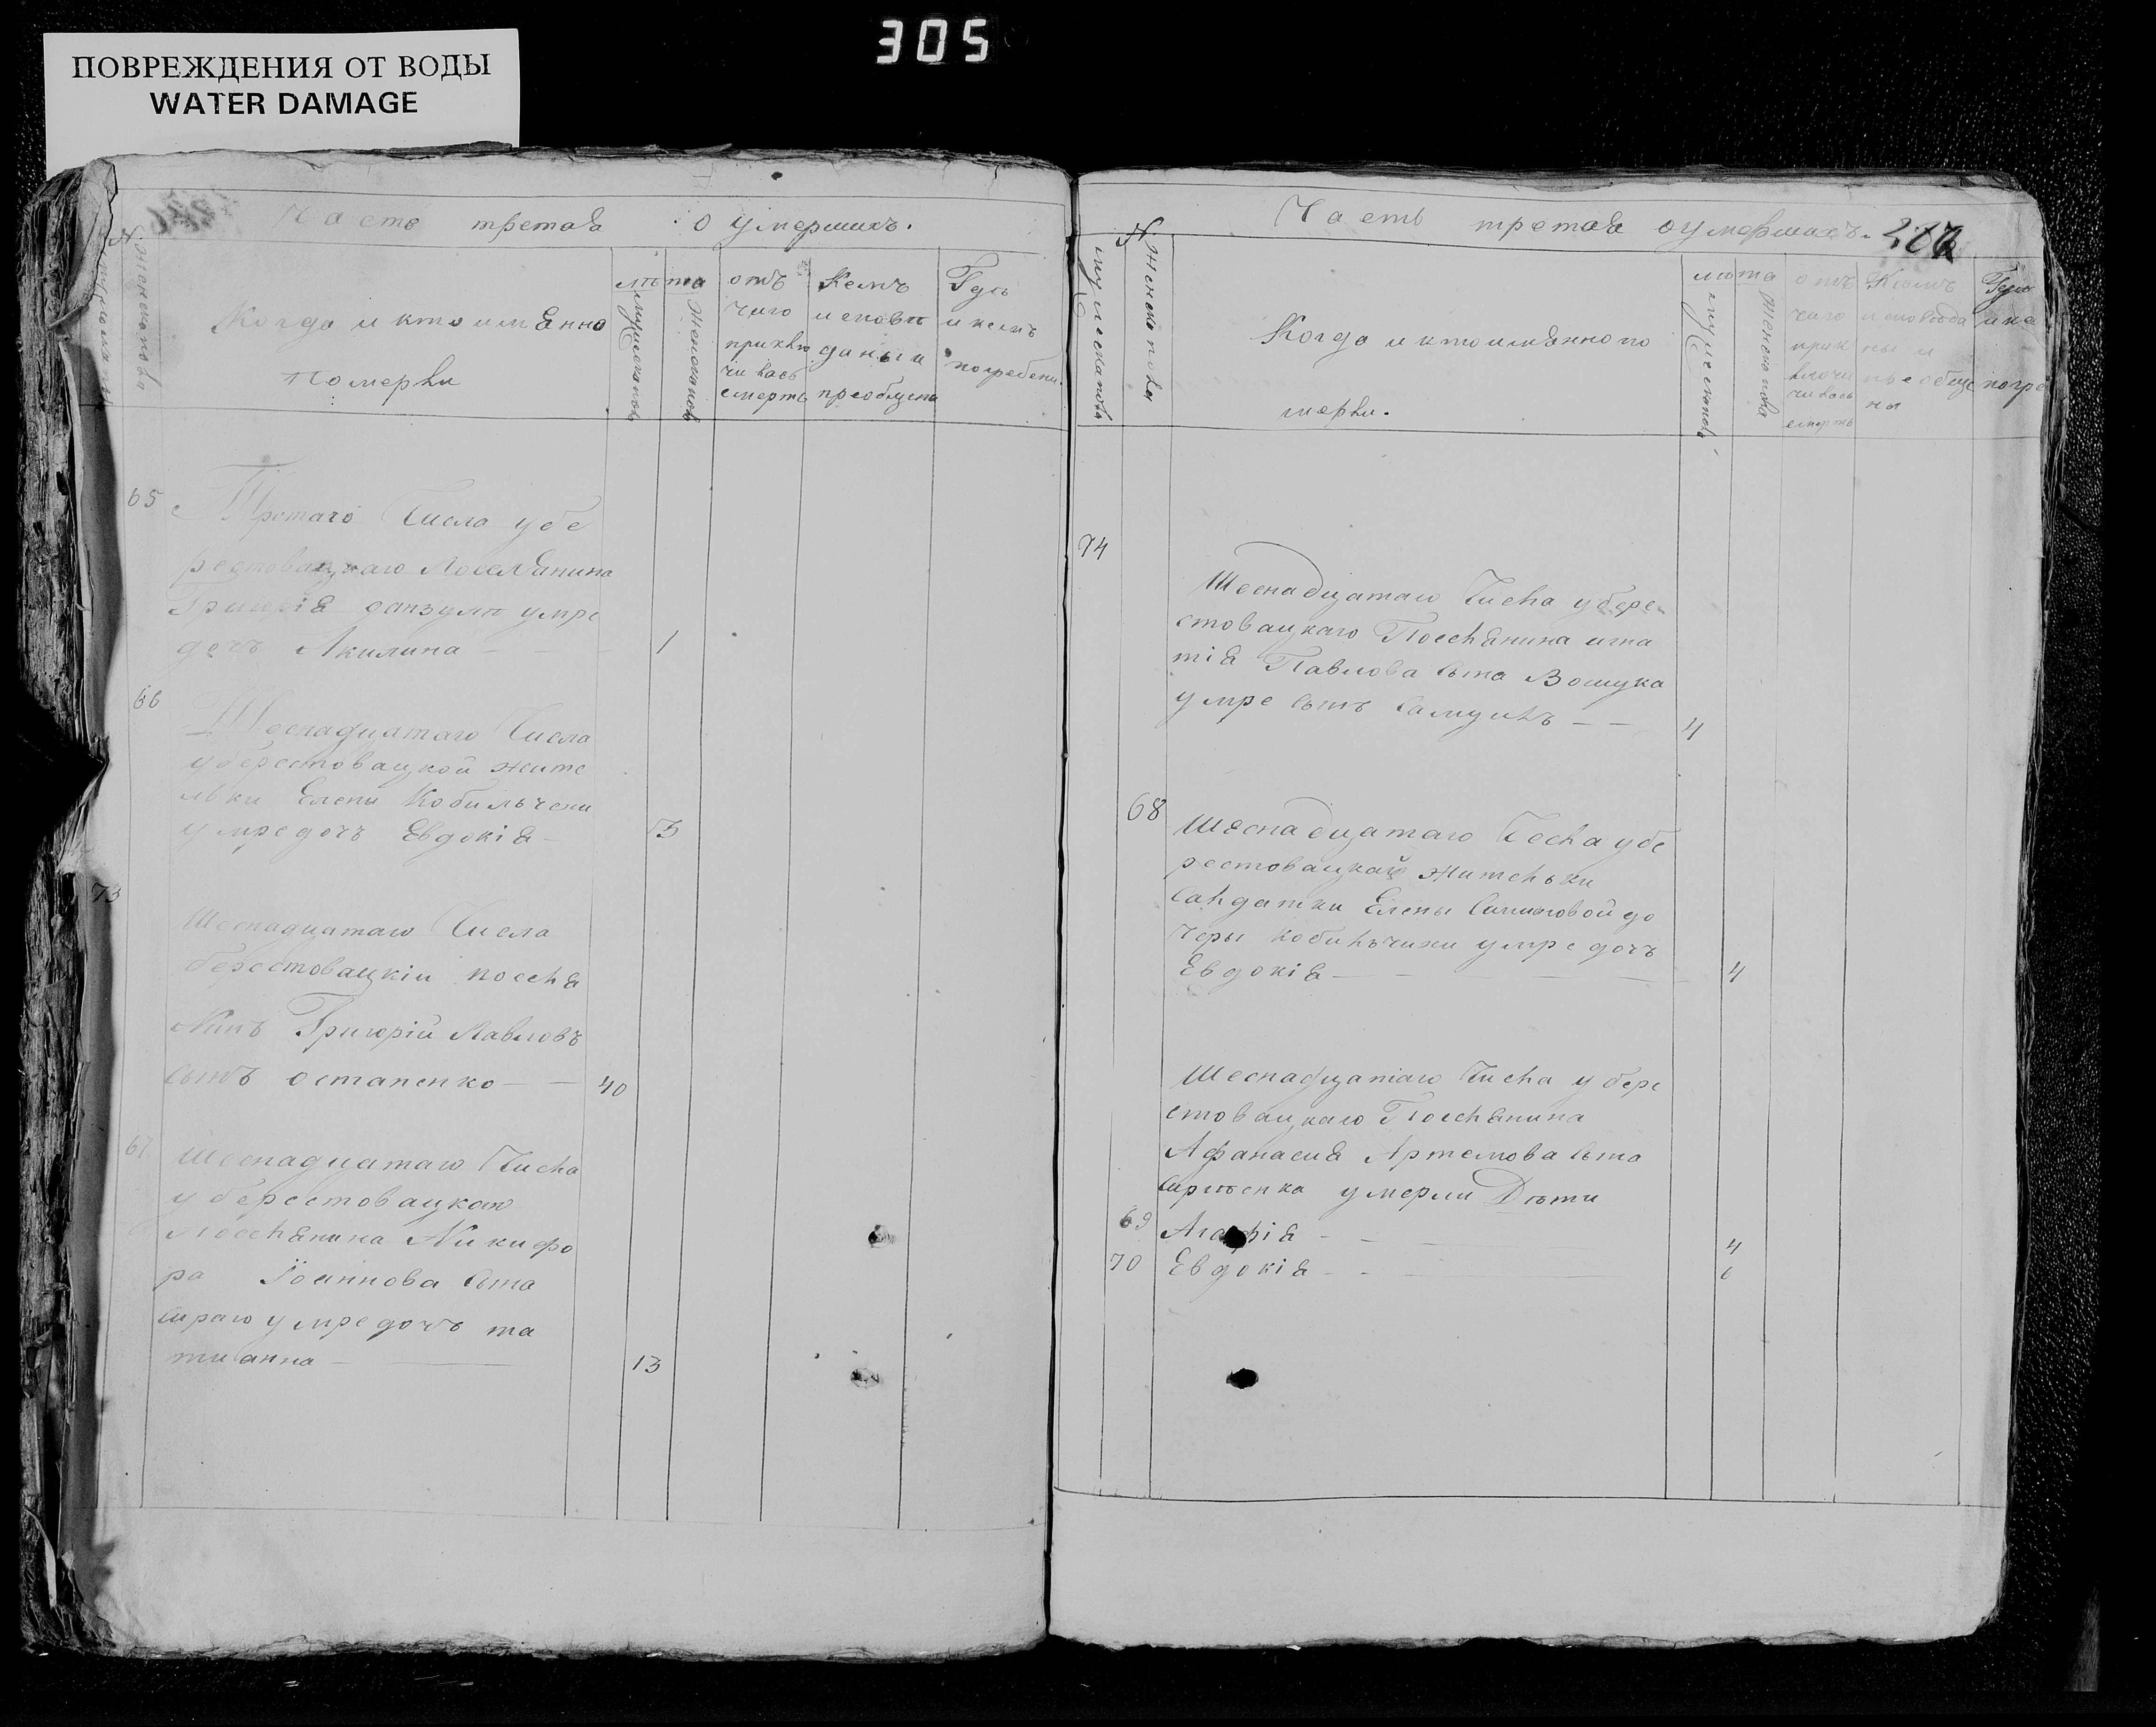 305
ПОВРЕЖДЕНИЯ ОТ ВОДЫ
WATER DAMAGE
Часть третая о умершихъ.
№
женска пола
Когда и кто имянно
померли
лѣта
мужеска пола
женска пола
отъ
чего
приклю
чилась
смерть
Кемъ
исповѣ
даны и
преобщены
Где
и кемъ
погребены.
65
Третаго Числа у бе
рестовацкаго Поселянина
Григорія умре
дочь Акилина – – –
1
66
Шеснадцатаго Числа
у берестовацкой жите
льки Елены Кобильчени
умре дочъ Евдокія –
3
73
Шеснадцатаго Числа
берестовацкіи поселя
нинъ Григорій Павловъ
сынъ остапенко – –
40
67
Шеснадцатаго Числа
у берестовацкаго
Поселянина Никифо
ра Іоаннова сына
сираго умре дочъ та
тианна –
13
Часть третая о умершихъ.
№
мужеска пола
женска пола
Когда и кто имянно по
мерли.
лѣта
мужеска пола
женска пола
отъ
чего
прик
лючи
чилась
смерть
Кѣмъ
исповѣда
ны и
преобще
ны
Где
и ке
погре
74
Шеснадцатаго Числа у бере
стовацкаго Поселянина игна
тія Павлова сына Вошука
умре сынъ Самуилъ – –
4
68
Шеснадцатаго Чесла у бе
рестовацкай жительки
Салдатки Елены до
черы кобильчихи умре дочъ
Евдокія – – – –
4
Шеснадцатаго Числа у бере
стовацкаго Поселянина
Афанасия Артемова сына
сиренка умерли Дѣти
69
Агафія – –
4
70
Евдокія – –
6